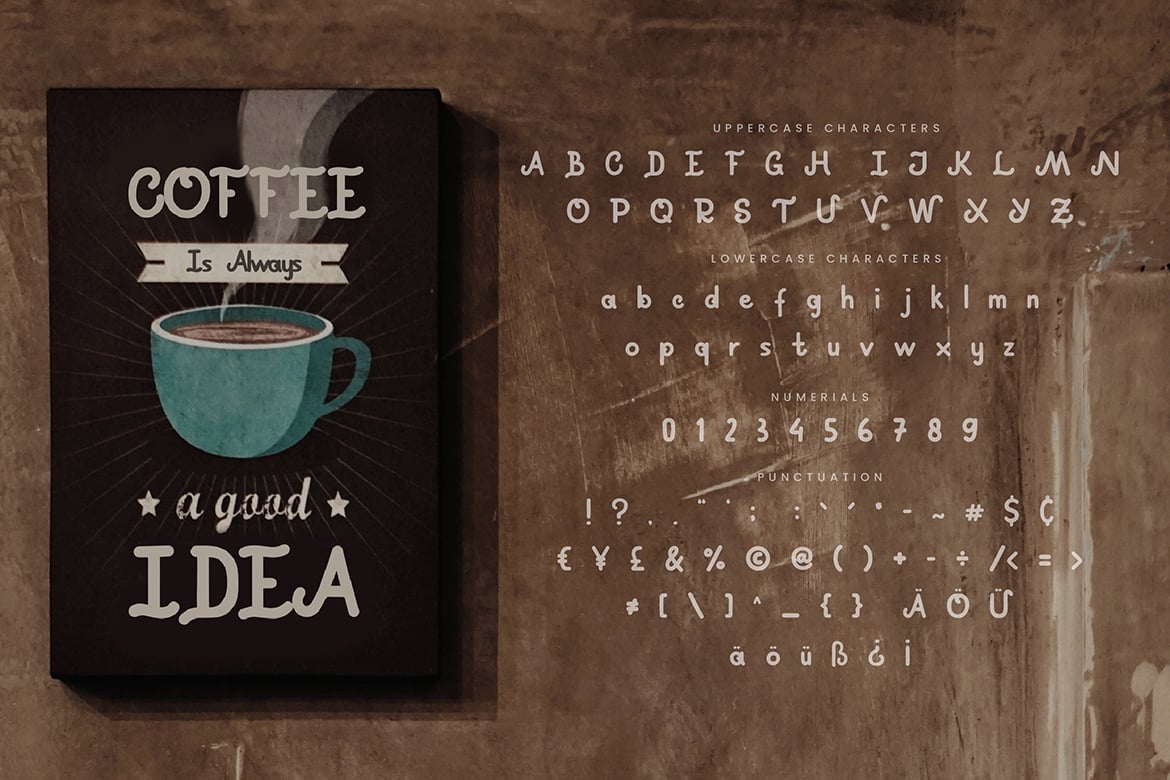 COFFEE
Is Always
a good
IDEA
UPPERCASE CHARACTERS
A B C D E F G H I J K L M N
O P Q R S T U V W X Y Z
LOWERCASE CHARACTERS
a b c d e f g h i j k l m n
o p q r s t u v w x y z
NUMERIALS
0 1 2 3 4 5 6 7 8 9
PUNCTUATION
! ? . . ¨ ' ; : ` ´ • - ~ # $ ¢
€ ¥ £ & % © @ ( ) + - ÷ / < = >
≠ [ \ ] ^ _ { } Ä Ö Ü
ä ö ü ß ¿ ¡